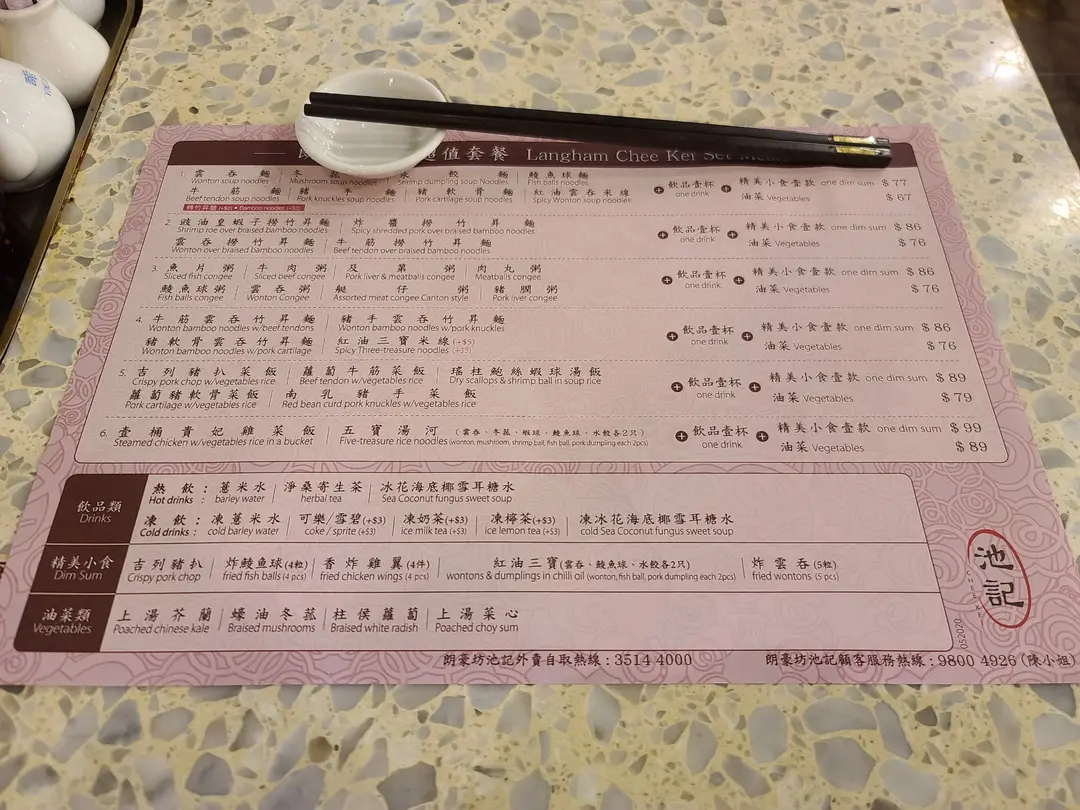 值套餐 Langham Chee Kei Set
1. 雲吞麵 冬菰麵 水餃麵 鯪魚球麵
Wonton soup noodles Mushroom soup noodles Shrimp dumpling soup noodles Fish balls noodles
牛筋麵 豬手麵 豬軟骨麵 紅油雲吞米線
Beef tendon soup noodles Pork knuckles soup noodles Pork cartilage soup noodles
轉竹昇麵 (+$2) • Bamboo noodles (+$2)
+ 飲品壹杯 one drink + 精美小食壹款 one dim sum $ 77
油菜 Vegetables $ 67
2. 豉油皇蝦子撈竹昇麵 炸醬撈竹昇麵
Shrimp roe over braised bamboo noodles Spicy shredded pork over braised bamboo noodles
雲吞撈竹昇麵 牛筋撈竹昇麵
Wonton over braised bamboo noodles Beef tendon over braised bamboo noodles
+ 飲品壹杯 one drink + 精美小食壹款 one dim sum $ 86
油菜 Vegetables $ 76
3. 魚片粥 牛肉粥 及第粥 肉丸粥
Sliced fish congee Sliced beef congee Pork liver & meatballs congee Meatballs congee
鯪魚球粥 雲吞粥 艇仔粥 豬膶粥
Fish balls congee Wonton Congee Assorted meat congee Canton style Pork liver congee
+ 飲品壹杯 one drink + 精美小食壹款 one dim sum $ 86
油菜 Vegetables $ 76
4. 牛筋雲吞竹昇麵 豬手雲吞竹昇麵
Wonton bamboo noodles w/beef tendons Wonton bamboo noodles w/pork knuckles
豬軟骨雲吞竹昇麵 紅油三寶米線 (+$5)
Wonton bamboo noodles w/pork cartilage Spicy Three-treasure noodles (+$5)
+ 飲品壹杯 one drink + 精美小食壹款 one dim sum $ 86
油菜 Vegetables $ 76
5. 吉列豬扒菜飯 蘿蔔牛筋菜飯 瑤柱鮑絲蝦球湯飯
Crispy pork chop w/vegetables rice Beef tendon w/vegetables rice Dry scallops & shrimp ball in soup rice
蘿蔔豬軟骨菜飯 南乳豬手菜飯
Pork cartilage w/vegetables rice Red bean curd pork knuckles w/vegetables rice
+ 飲品壹杯 one drink + 精美小食壹款 one dim sum $ 89
油菜 Vegetables $ 79
6. 壹桶貴妃雞菜飯 五寶湯河 (雲吞、冬菰、蝦球、鯪魚球、水餃各2只)
Steamed chicken w/vegetables rice in a bucket Five-treasure rice noodles (wonton, mushroom, shrimp ball, fish ball, pork dumpling each 2pcs)
+ 飲品壹杯 one drink + 精美小食壹款 one dim sum $ 99
油菜 Vegetables $ 89
飲品類
Drinks
熱飲: 薏米水 淨桑寄生茶 冰花海底椰雪耳糖水
Hot drinks : barley water herbal tea Sea Coconut fungus sweet soup
凍飲: 凍薏米水 可樂/雪碧(+$3) 凍奶茶(+$3) 凍檸茶(+$3) 凍冰花海底椰雪耳糖水
Cold drinks : cold barley water coke / sprite (+$3) ice milk tea (+$3) ice lemon tea (+$3) cold Sea Coconut fungus sweet soup
精美小食
Dim Sum
吉列豬扒 炸鯪魚球(4粒) 香炸雞翼(4件) 紅油三寶(雲吞、鯪魚球、水餃各2只) 炸雲吞(5粒)
Crispy pork chop fried fish balls (4 pcs) fried chicken wings (4 pcs) wontons & dumplings in chilli oil (wonton, fish ball, pork dumpling each 2pcs) fried wontons (5 pcs)
油菜類
Vegetables
上湯芥蘭 蠔油冬菰 柱侯蘿蔔 上湯菜心
Poached chinese kale Braised mushrooms Braised white radish Poached choy sum
池記
CHEE KEI
052020
朗豪坊池記外賣自取熱線:3514 4000 朗豪坊池記顧客服務熱線:9800 4926 (陳小姐)